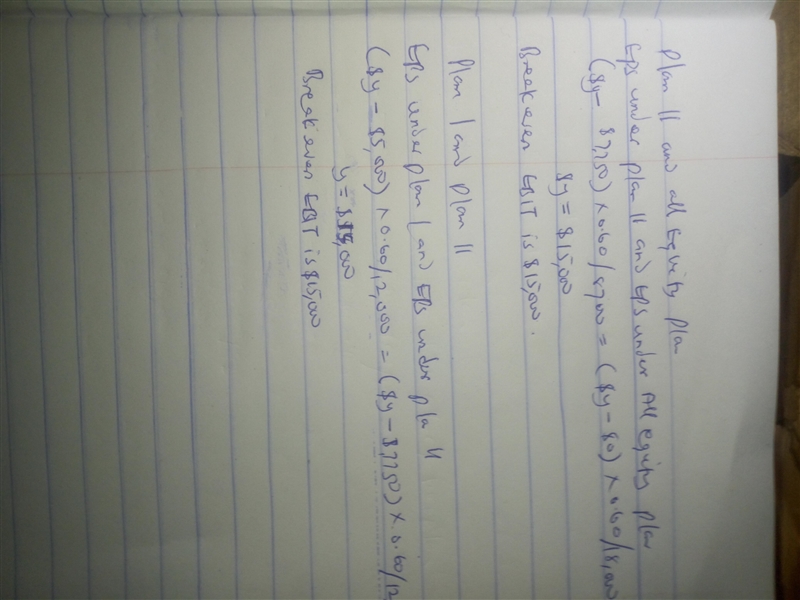 Plan II and all Equity Plan
EPS under plan II and EPS under All equity plan
($y - $7,750) × 0.60 / 8700 = ($y - $0) × 0.60/18,000
$y = $15,000
Break even EBIT is $15,000.
Plan I and plan II
EPS under plan I and EPS under pla II
($y - $5,000) × 0.60/12,000 = ($y - $7,750) × 0.60/12,
y = $15,000
Break even EBIT is $15,000